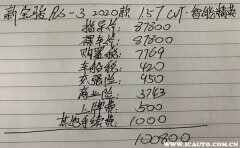 新宝骏RS-3 2020款 1.5T CVT 智能精英
指导价 87800
裸车价 87800
购置税 7769
车船税 420
交强险 450
商业险 3763
上牌费 500
其他手续费 1000
100800
WWW.ICAUTO.COM.CN